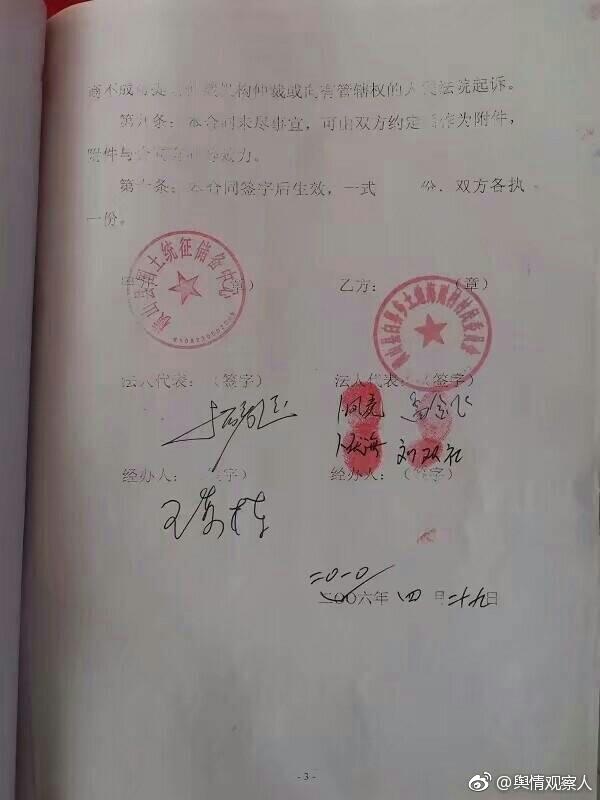 构仲裁或向有管辖权的人民法院起诉。
第九条:本合同未尽事宜,可由双方约定后作为附件,
附件与合同力。
第十条:本合同签字后生效,一式 份,双方各执
一份。
横山县国土统征储备中心
(章) 乙方: (章)
村民委员会
法人代表:(签字) 法人代表:(签字)
刘双社
经办人:签字) 经办人:(签字)
二〇一〇
二〇〇六年四月二十九日
- 3 -
@舆情观察人